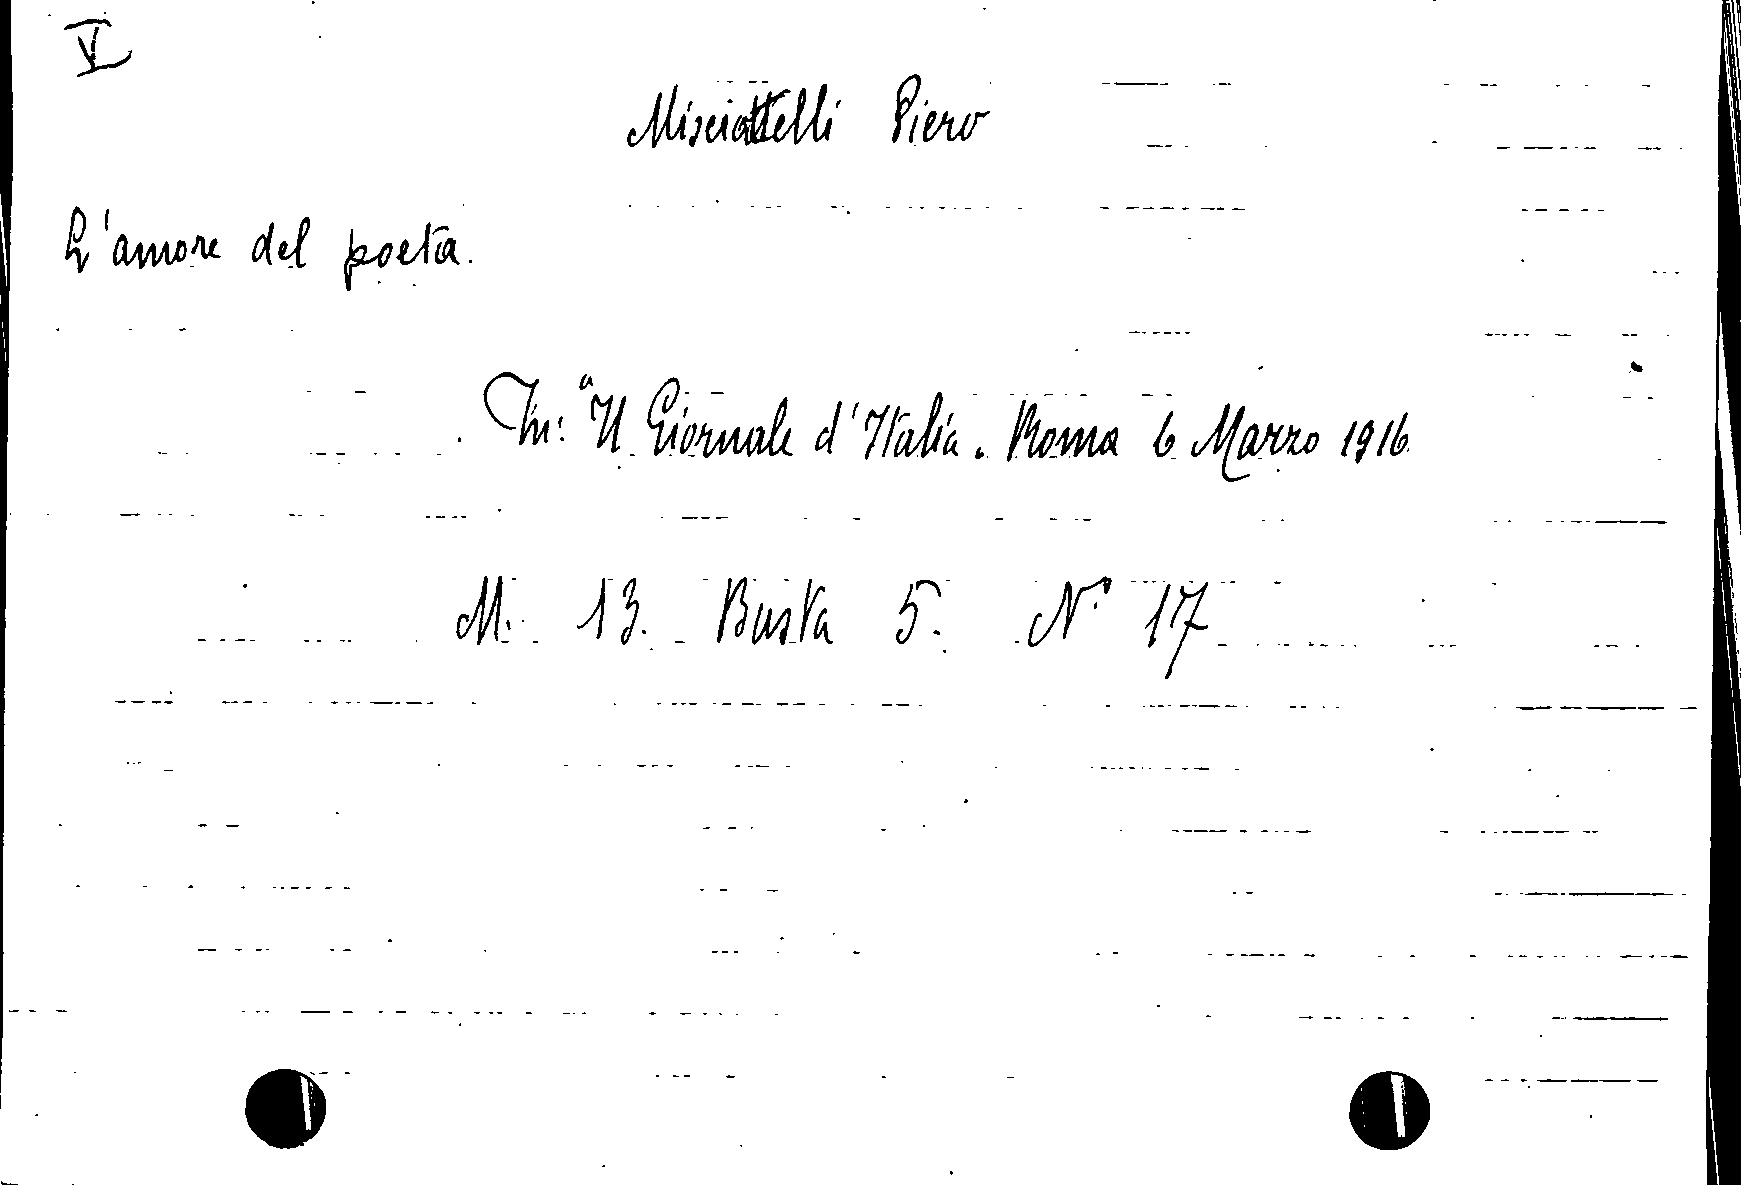 V
Misciattelli Piero
L'amore del poeta.
In: "Il Giornale d'Italia. Roma 6 Marzo 1916
M. 13. Busta 5. N° 17